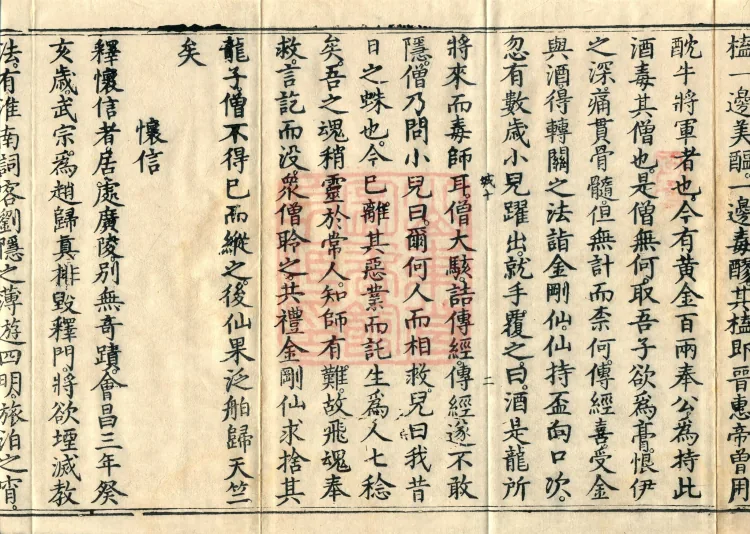 榼一邊美醖一邊毒醪其榼即晋惠帝曾用
酖牛將軍者也今有黃金百兩奉公爲持此
酒毒其僧也是僧無何取吾子欲爲膏恨伊
之深痛貫骨髓但無計而柰何傳經喜受金
與酒得轉關之法詣金剛仙仙持盃向口次
忽有數歲小兒躍出就手覆之曰酒是龍所
城十
二
將來而毒師耳僧大駭詰傳經傳經遂不敢
隱僧乃問小兒曰爾何人而相救兒曰我昔
日之蛛也今已離其惡業而託生爲人七稔
矣吾之魂稍靈於常人知師有難故飛魂奉
救言訖而没衆僧聆之共禮金剛仙求捨其
龍子僧不得已而縱之後仙果泛舶歸天竺
矣
懷信
釋懷信者居處廣陵别無奇蹟會昌三年癸
亥歲武宗爲趙歸真排毁釋門將欲堙滅教
法有淮南詞客劉隱之薄遊四明旅泊之宵